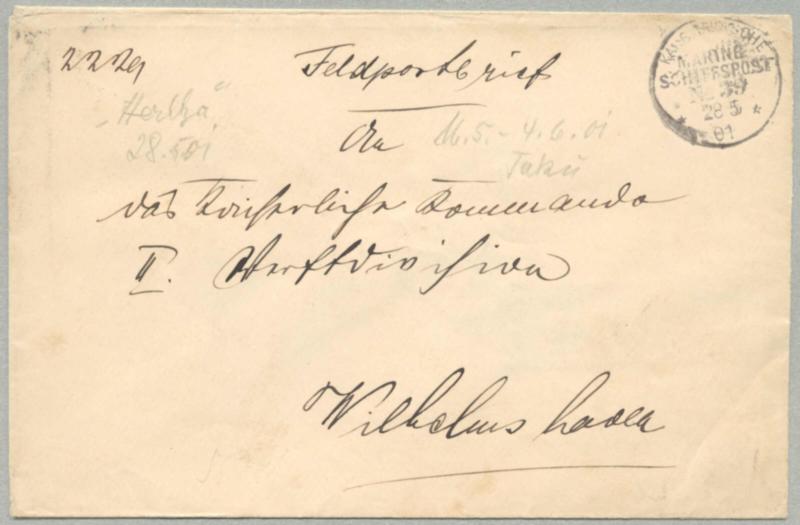 2229
Feldpostbrief
KAIS. DEUTSCHE
MARINE-
SCHIFFSPOST
No 39
28 5
* 01 *
„Hertha"
28.5.01
An
16.5.-4.6.01
Taku
das Kaiserliche Kommando
II. Werftdivision
Wilhelmshaven